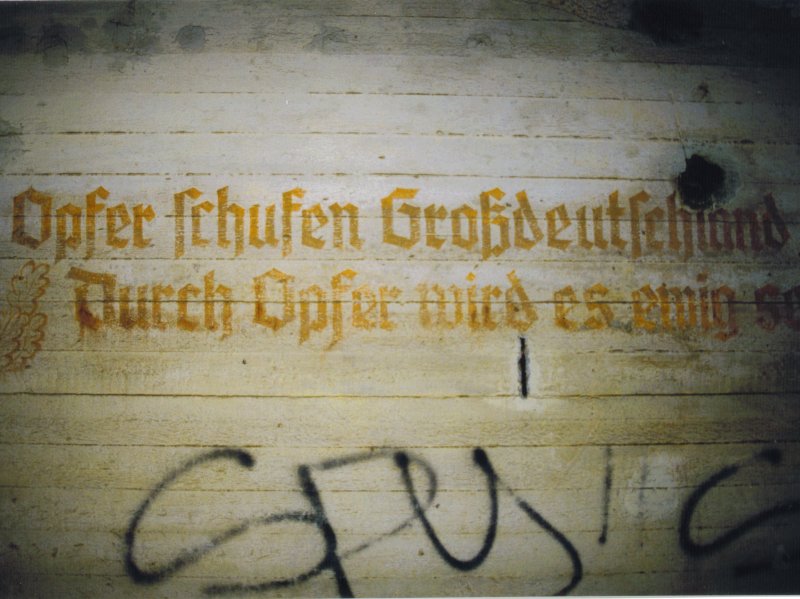 Opfer schufen Großdeutschland
Durch Opfer wird es ewig se